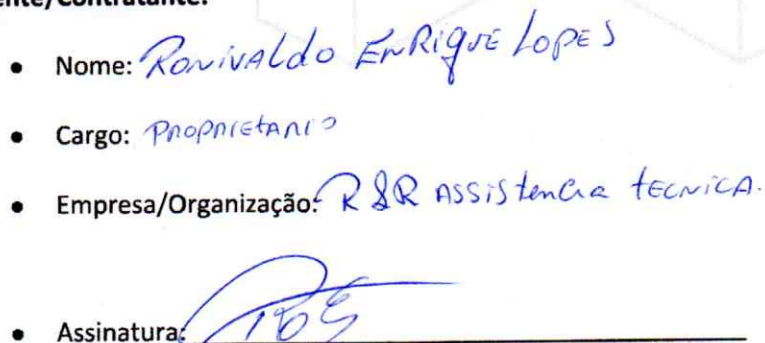 ente/Contratante:
• Nome: Ronivaldo Enrique Lopes
• Cargo: Proprietario
• Empresa/Organização: R&R Assistencia tecnica.
• Assinatura: